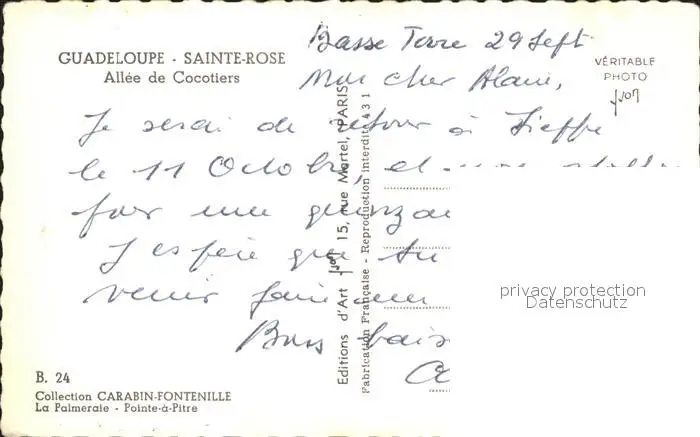 GUADELOUPE - SAINTE-ROSE
Allée de Cocotiers
Basse Terre 29 Sept
Mon cher Alain,
VÉRITABLE
PHOTO
Je serai de retour à
le 11 Octobre, et
pour une
J'espère que tu
venir faire
B. 24
Collection CARABIN-FONTENILLE
La Palmeraie - Pointe-à-Pitre
Editions d'Art 15, rue Martel, PARIS
Fabrication Française - Reproduction interdite 431
privacy protection
Datenschutz